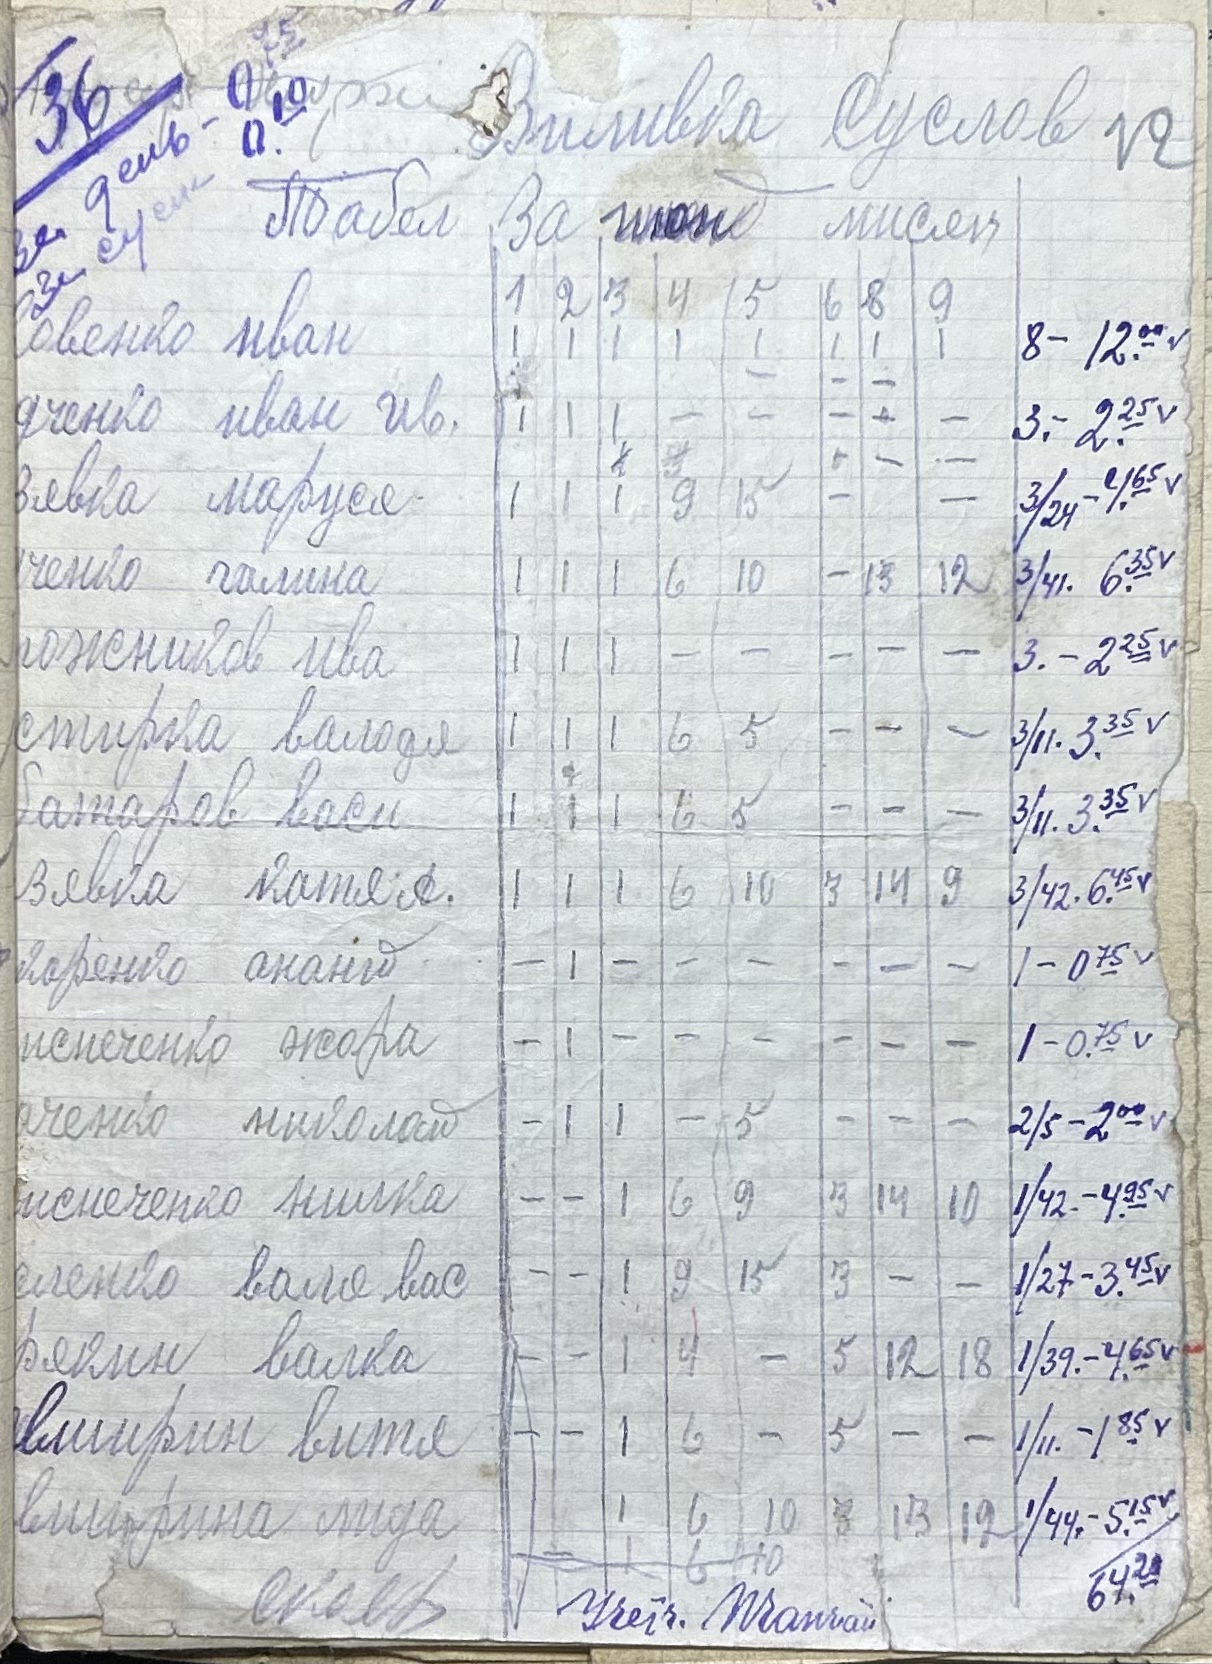 36
За день - 0.75
За суслон 0.10
Виливка Суслов 12
Табел За июнь мисяц
1 2 3 4 5 6 8 9
овенко иван 1 1 1 1 1 1 1 1 8 - 12.00 v
дченко иван ив. 1 1 1 - - - - - 3. - 2.25 v
зявка маруся 1 1 1 9 15 - - 3/24 - 4.65 v
ченко галина 1 1 1 6 10 - 13 12 3/41. 6.35 v
рожников ива 1 1 1 - - - - - 3. - 2.25 v
стирка валодя 1 1 1 6 5 - - - 3/11. 3.35 v
батаров васи 1 1 1 6 5 - - - 3/11. 3.35 v
зявка катя А. 1 1 1 6 10 3 14 9 3/42. 6.45 v
каренко ананий - 1 - - - - - - 1 - 0.75 v
испеченко жора - 1 - - - - - - 1 - 0.75 v
аченко николай - 1 1 - 5 - - - 2/5 - 2.00 v
испеченко нилка - - 1 6 9 3 14 10 1/42. - 4.95 v
еленко валя вас - - 1 9 15 3 - - 1/27 - 3.45 v
рякин валка - - 1 4 - 5 12 18 1/39. - 4.65 v
вширин витя - - 1 6 - 5 - - 1/11. - 1.85 v
вширина лида 1 6 10 3 13 12 1/44. - 5.15 v
- 1 6 10
64.20
Учётч.